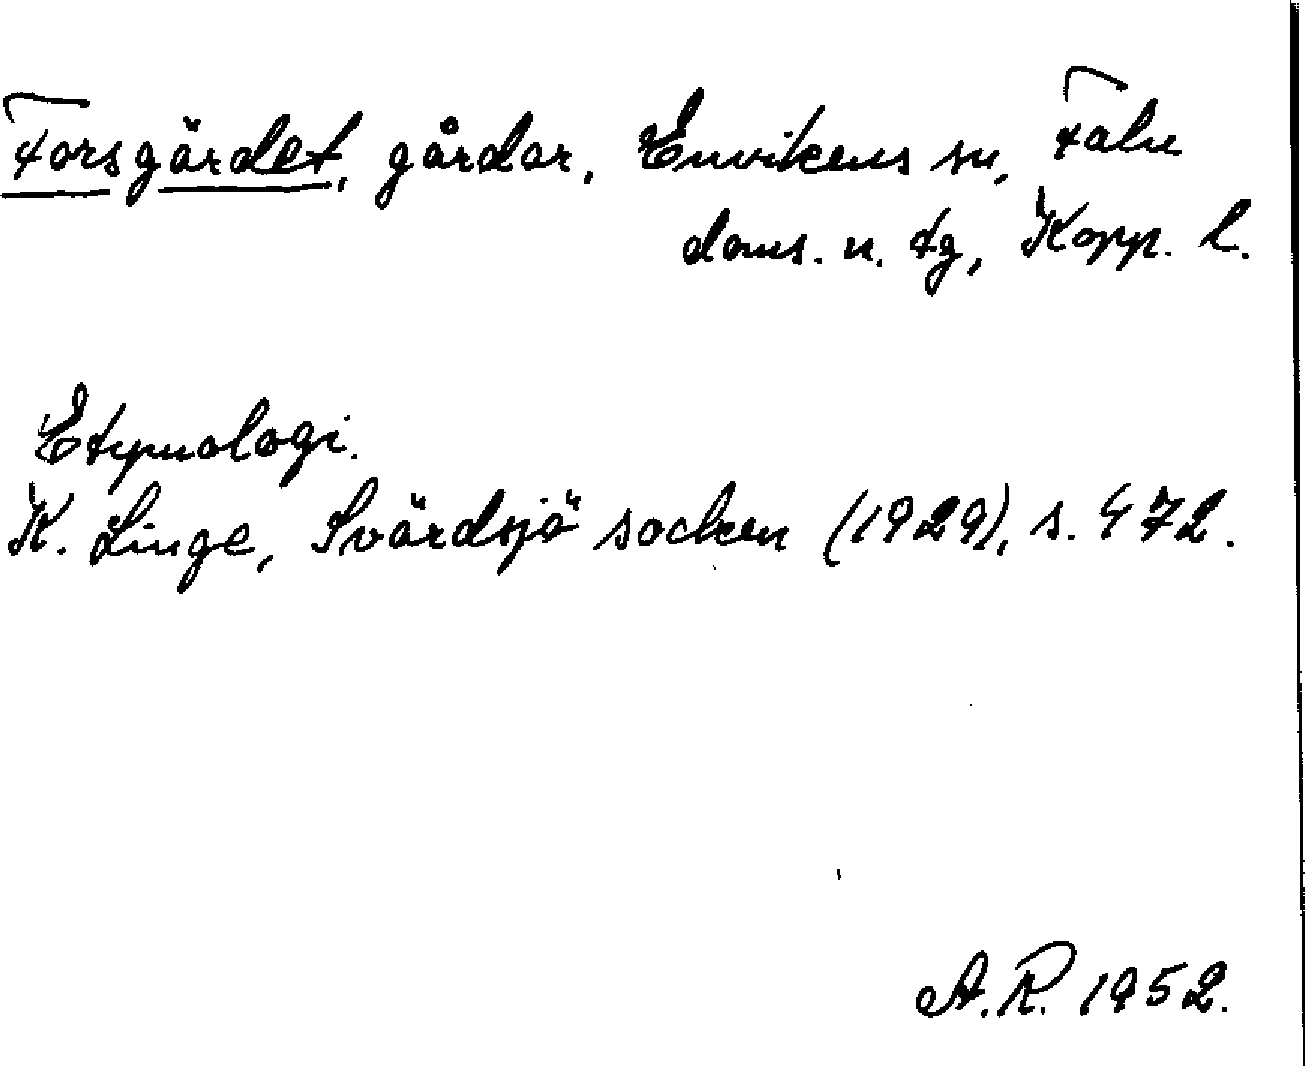 Forsgärdet, gårdar, Envikens sn, Falu
doms. n. tg, Kopp. l.
Etymologi.
K. Linge, Svärdsjö socken (1929), s. 472.
A.R. 1952.